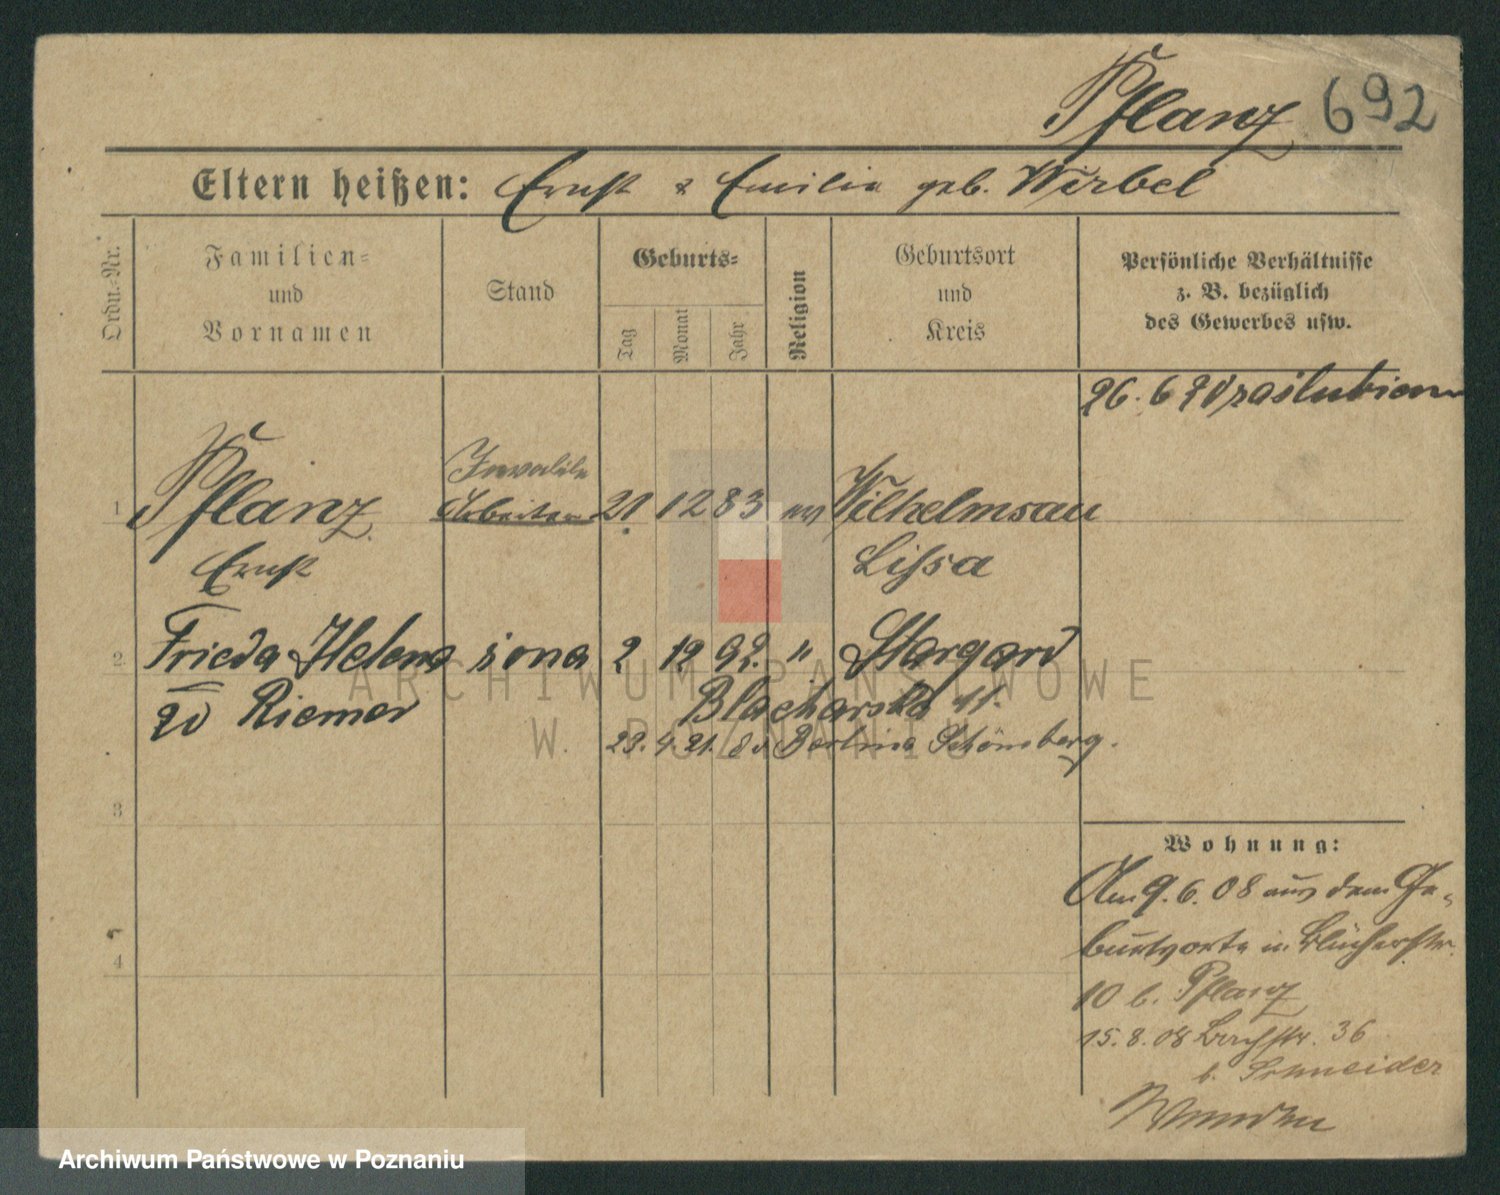 Pflanz 692
Eltern heißen: Ernst & Emilie geb. Wirbel
Ordn.-Nr.
Familien-
und
Vornamen
Stand
Geburts-
Tag
Monat
Jahr
Religion
Geburtsort
und
Kreis
Persönliche Verhältnisse
z. B. bezüglich
des Gewerbes usw.
26. 6 20 zaślubiony
Invalide
1 Pflanz Arbeiter 21 12 83 ev Wilhelmsau
Ernst Lissa
2 Frieda Helena żona 2 12 92. " Stargard
zd Riemer Blacharska 11.
23. 4. 21. Berlina Schöneberg.
3
4
Wohnung:
Am 9. 6. 08 aus dem Ge-
burtsorte in Blücherstr.
10 b. Pflanz
15. 8. 08 Bachstr. 36
b. Schneider
ARCHIWUM PAŃSTWOWE
W POZNANIU
Archiwum Państwowe w Poznaniu